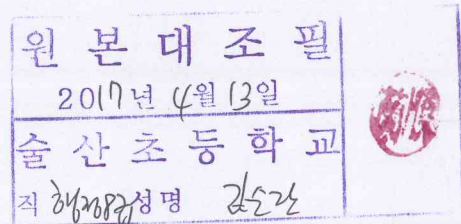 원본대조필
2017년 4월 13일
술산초등학교
직 행정8급 성명 김순란